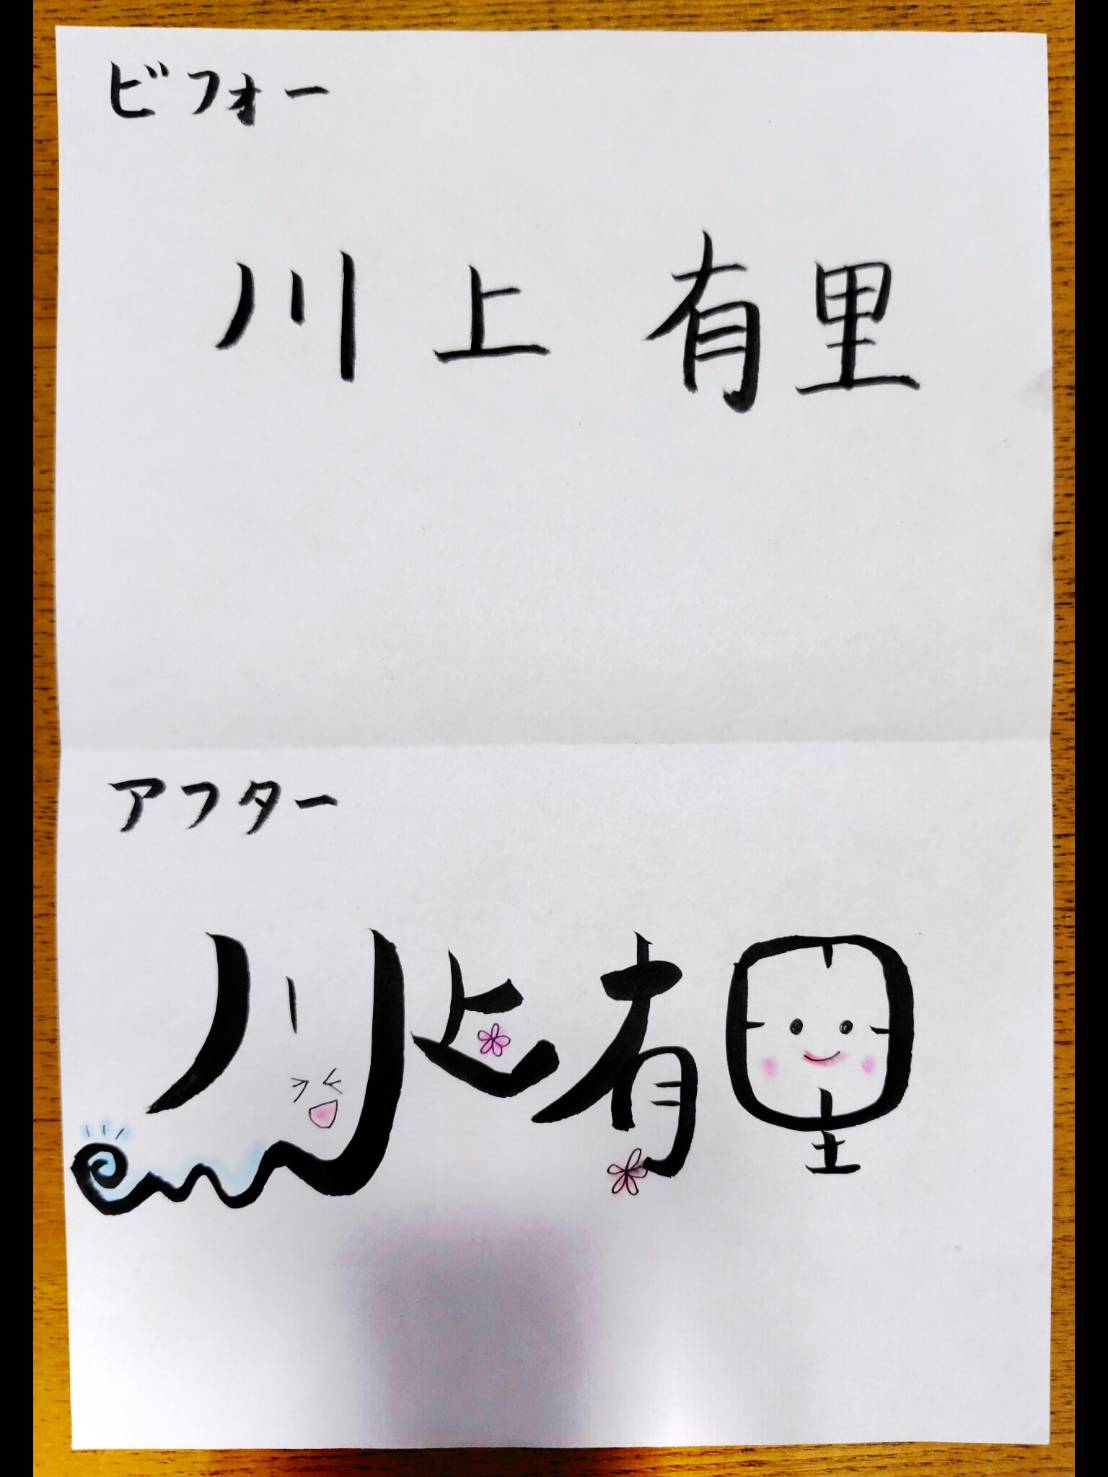 ビフォー
川上 有里
アフター
川上有里